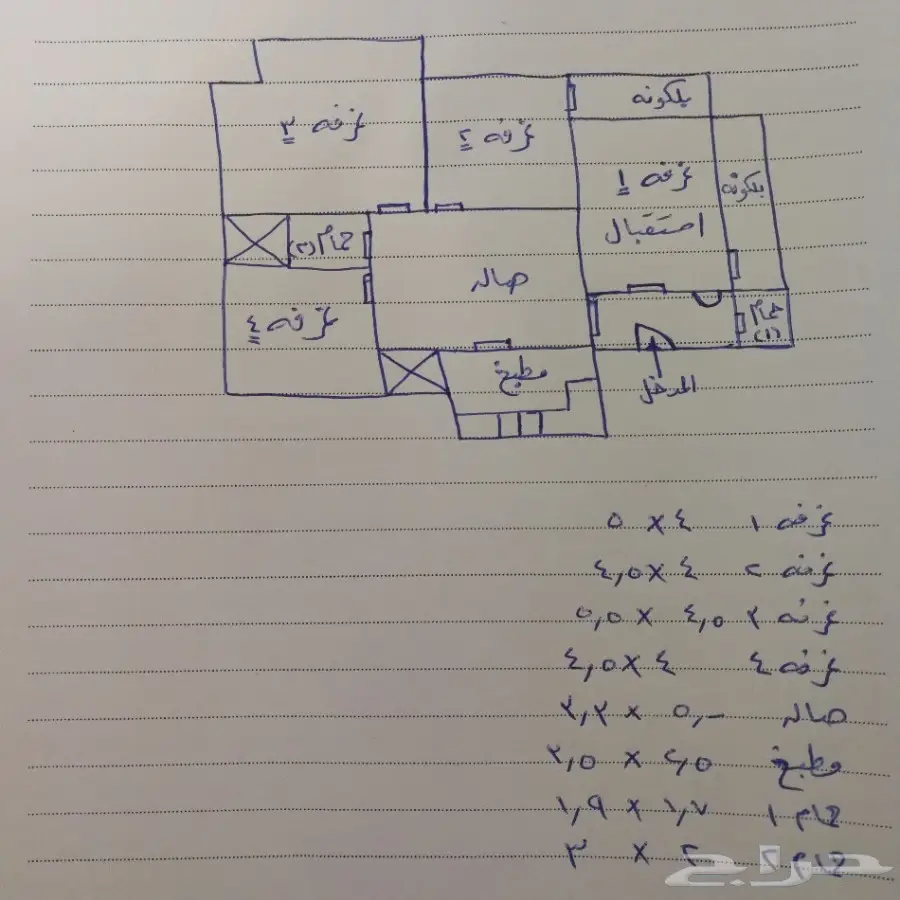 بلكونه
غرفه ٣
غرفه ٢
غرفه ١
بلكونه
استقبال
حمام (٢)
صاله
غرفه ٤
حمام (١)
مطبخ
المدخل
غرفه ١ ٤ × ٥
غرفه ٢ ٤ × ٤,٥
غرفه ٣ ٤,٥ × ٥,٥
غرفه ٤ ٤ × ٤,٥
صاله ٥,- × ٣,٣
مطبخ ٢,٥ × ٣,٥
حمام ١ ١,٧ × ١,٩
حمام ٢ ٢ × ٣
حراج